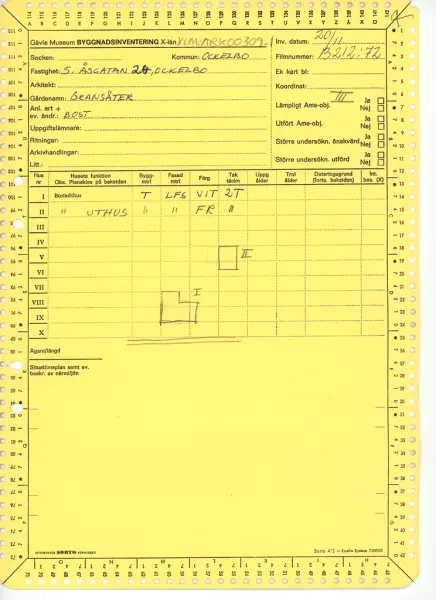 Gävle Museum BYGGNADSINVENTERING X-län XLM.ARK00309-1
Inv. datum: 20/11
Socken:
Kommun: OCKELBO
Filmnummer: B212:72
Fastighet: S. ÅSGATAN 24, OCKELBO
Ek kart bl:
Arkitekt:
Koordinat:
Gårdsnamn: GRANSÄTER
III
Anl. art + ev. ändr.: BOST
Lämpligt Ams-obj. Ja Nej
Uppgiftslämnare:
Utfört Ams-obj. Ja Nej
Ritningar:
Större undersökn. önskvärd Ja Nej
Arkivhandlingar:
Större undersökn. utförd Ja Nej
Litt:
Hus nr
Husets funktion
Obs. Planskiss på baksidan
Bygg- mtrl
Fasad mtrl
Färg
Tak täckn
Uppg ålder
Trol ålder
Dateringsgrund (forts. baksidan)
Int. bes. (X)
I Bostadshus T LFS VIT 2T
II " UTHUS " " FR "
III
IV
V
VI
VII
VIII
IX
X
II
I
Ägarelängd
Situationsplan samt ev. beskr. av närmiljön